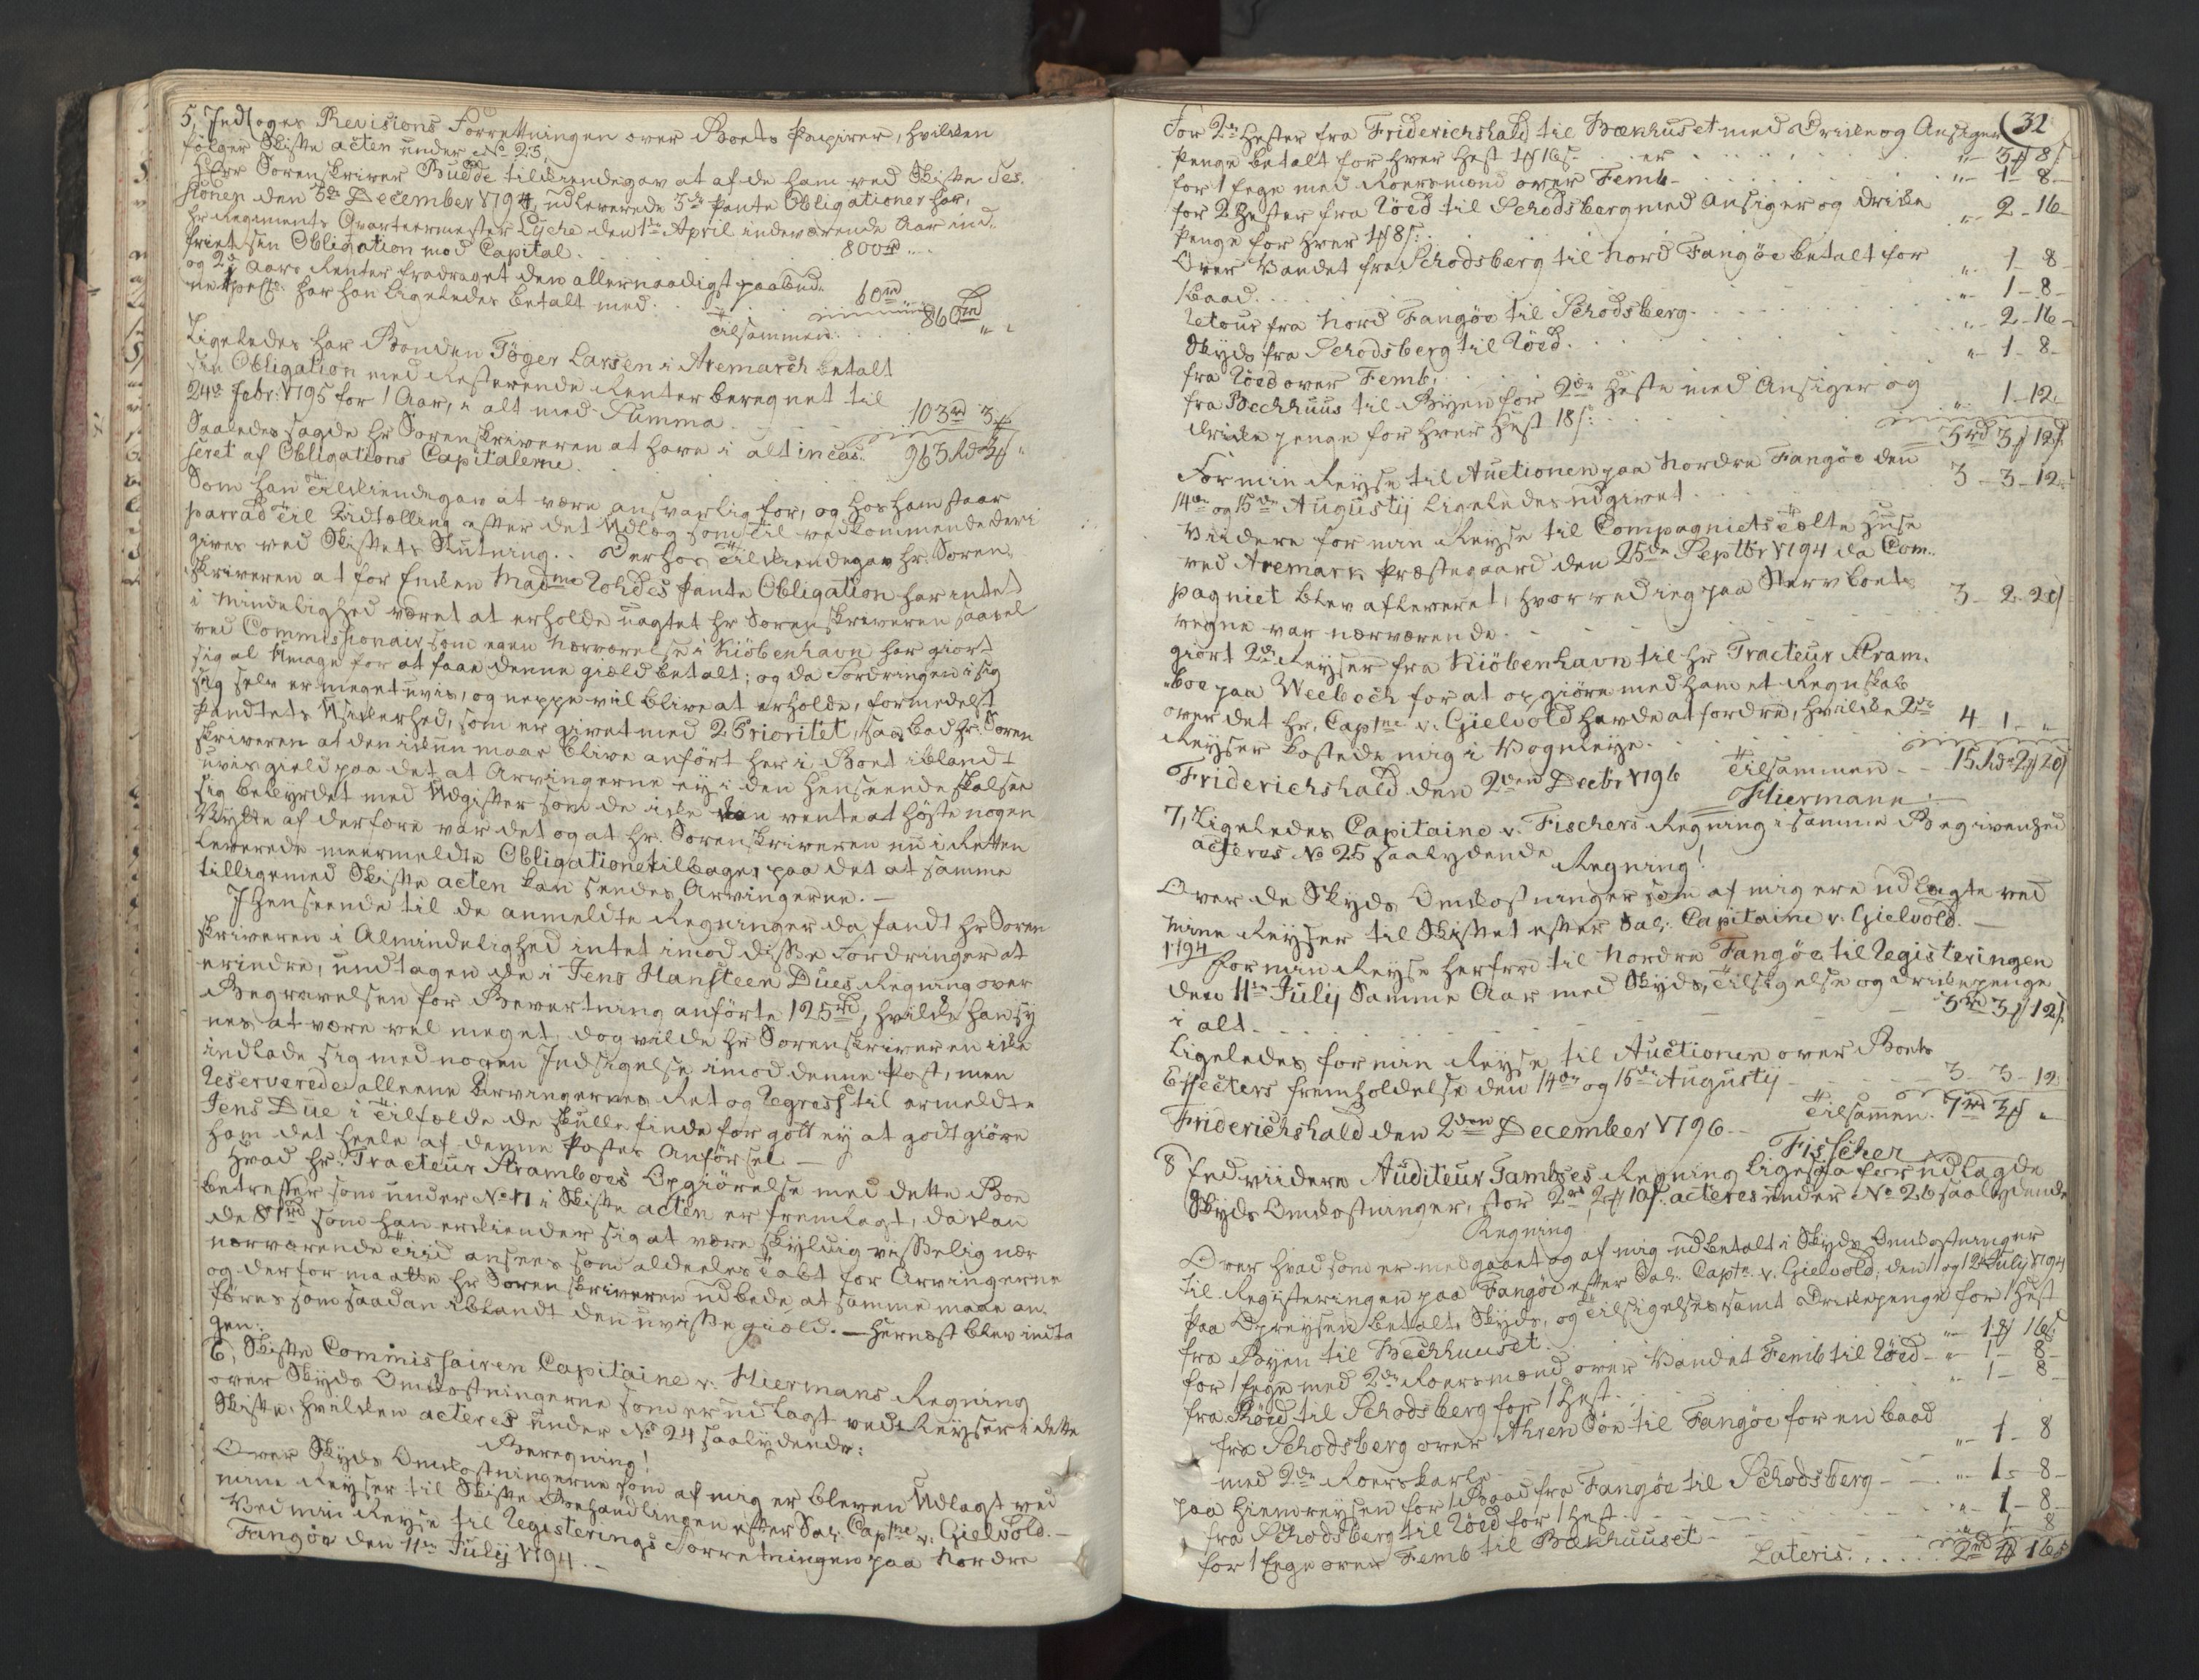 5, Indtoges Revisions Forrettningen over Boets Papirer, hvilken
følger Skifte acten under No 23,
Herr Sorenskriver Budde tilkiendegav at af de ham ved Skifte Ses-
sionen den 3de December 1794, udleverede 3de Pante Obligationer har,
hr Regiments Qvarteermester Lÿche den 1te April indeværende Aar ind-
friet sin Obligation med Capital . . . 800rd ..
og 2de Aars Renter fradraget den allernaadigst paabudne
 har han ligeledes betalt med . . 60rd
Tilsammen . . 860rd " "
Ligeledes har Bonden Töger Larsen i Aremarch betalt
sin Obligation med Resterende Renter beregnet til
24de Febr: 1795 for 1 Aar, i alt med Summa . . 103rd 3
Saaledes sagde hr Sorenskriveren at have i alt incas-
seret af Obligations Capitalerne . . 963 Rdr 3
Som han Tilkiendegav at være ansvarlig for, og hos ham staar
parrad Til Udtælling efter det Udlæg som til vedkommende deri
gives ved Skiftets Slutning. . Derhos Tilkiendegav hr. Soren-
skriveren at for Enken Madme Rohdes Pante Obligation har intet
i Mindelighed været at erholde uagtet hr Sorenskriveren saavel
ved Commissionair som egen Nærværelse i Kiöbenhavn har giort
sig al Umage for at faae denne giæld betalt; og da Fordringen i sig
sig selv er meget uvis, og neppe vil blive at erholde, formedelst
Pandtets Usikerhed, som er givet med 2 Prioritet, saa bad hr. Soren
skriveren at den ikkun maae blive anfört her i Boet iblandt
uvis gield paa det at Arvingerne ey i den Henseende skal see
sig bebyrdet med Udgifter som de ikke kan vente at höste nogen
Nÿtte af derfore var det og at hr. Sorenskriveren nu i Retten
leverede meermeldte Obligation tilbage, paa det at samme
tilligemed Skifte acten kan sendes Arvingerne. —
I Henseende til de anmeldte Regninger da fandt hr Soren
skriveren i Almindelighed intet imod disse Fordringer at
erindre, undtagen de i Jens Hansteen Dües Regning over
Begravelsen for Bevertning anförte 125rd, hvilke han sÿ
nes at være vel meget, dog vilde hr Sorenskriveren ikke
indlade sig med nogen Indsigelse imod denne Post, men
Reserverede alleene Arvingernes Ret og Regress til ermeldte
Jens Düe i Tilfælde de skulle finde for gott ey at godtgiöre
ham det heele af denne Postes Anförsel. —
Hvad hr. Tracteur Stramboes Opgiörelse med dette Boe
betreffer som under No 11 i Skifte acten er fremlagt, da kan
de 81rd som han erkiender sig at være skÿldig visselig nær
nærværende Tiid ansees som aldeeles tabt for Arvingerne
og derfor maatte hr Sorenskriveren udbede at samme maae an-
föres som saadan iblandt den uvisse giæld. — Hernæst blev indta
gen:
6, Skifte Commissairen Capitaine v. Hiermans Regning
over Skÿds Omkostningerne som er udlagt ved Reÿser i dette
Skifte, hvilken acteres under No 24 saalÿdende:
Beregning!
Over Skÿds Omkostningerne som af mig er bleven Udlagt ved
mine Reÿser til Skifte Behandlingen efter Sal: Captne v. Gielvold. —
Ved min Reÿse til Registerings Forretningen paa Nordre
Fangöe den 11te Julÿ 1794. —
32
For 2de Hester fra Friderichshald til Bækhuset med Drike og Ansiger
Penge betalt for hver Hest 1 16 s . . er . . " - 3 8
for 1 Fege med Roersmænd over Femb - " - 1 - 8 -
for 2 Hester fra Röed til Schodsberg med Ansiger og Drike
Penge for hver 1 8 s . . " 2 - 16
Over Vandet fra Schodsberg til Nord Fangöe betalt for
1 baad . . " 1 - 8
Retour fra Nord Fangöe til Schodsberg . . " 1 - 8 -
Skÿds fra Schodsberg til Röed . . " 2 - 16 -
fra Röed over Femb, . . " 1 - 8 -
fra Bechhuus til Bÿen for 2de Heste med Ansiger og
Drike penge for hver Hest 18 s . . " 1 - 12
3rd 3 12
For min Reÿse til Auctionen paa Nordre Fangöe den
14de og 15de Augustÿ ligeledes udgivet . . 3 - 3 - 12
Viidere for min Reÿse til Compagniets Tælte Huse
ved Aremark Præstegaard den 25de Septbr 1794 da Com-
pagniet blev afleveret, hvorved jeg paa Stervboets
vegne var nærværende . . 3 - 2 - 20
giört 2de Reÿser fra Kiöbenhavn til hr Tracteur Stram-
boe paa Weeboch for at opgiöre med ham et Regnskab
over det hr. Captne v. Gielvold havde at fordre, hvilke 2de
Reÿser kostede mig i Vognleÿe . . 4 - 1 - "
Tilsammen - 15 Rdr 2 20
Friderichshald den 2den Decbr 1796
Hiermann
7, Ligeledes Capitaine v. Fischers Regning i samme Begivenhed
acteres No 25 saalydende
Regning!
Over de Skyds Omkostninger som af mig ere udlagte ved
mine Reÿser til Skiftet efter Sal: Capitaine v. Gielvold. —
1794
for min Reÿse herfra til Nordre Fangöe til Registeringen
den 11te Julÿ samme Aar med Skÿds, Tilsigelse og Drikepenge
i alt . . 3rd 3 12
Ligeledes for min Reÿse til Auctionen over Boets
Effecters fremholdelse den 14de og 15de Augustÿ . . 3 - 3 - 12
Tilsamen . 7rd 3 "
Friderichshald den 2den December 1796 -
Fisscher
8 End viidere Auditeur Tambses Regning ligesaa for udlagde
Skÿds Omkostninger, stor 2rd 2 10 s. acteres under No 26 saalydende
Regning
Over hvad som er medgaaet og af mig udbetalt i Skÿds Omkostninger
til Registeringen paa Fangöe efter Sal: Captn v. Gielvold, den 11 og 12te Julÿ 1794
Paa Opreÿsen betalt, Skÿds, og Tilsigelse, samt Drikepenge for 1 Hest
fra Bÿen til Bechhuuset . . " - 1 16
for 1 Fege med 2de Roersmænd over Vandet Femb til Röed - " - 1 - 8 -
fra Röed til Schodsberg for 1 Hest . . " 1 - 8
fra Schodsberg over Ahren Söe til Fangöe for en baad
med 2de Roerskarle . . " - 1 - 8
paa Hiemreÿsen for 1 Baad fra Fangöe til Schodsberg - " - 1 - 8 -
fra Schodsberg til Röed for 1 Hest . . " - 1 - 8 -
for 1 Fege over Femb til Bækhuuset . . " 1 8
Lateris . . . . 2rd 16